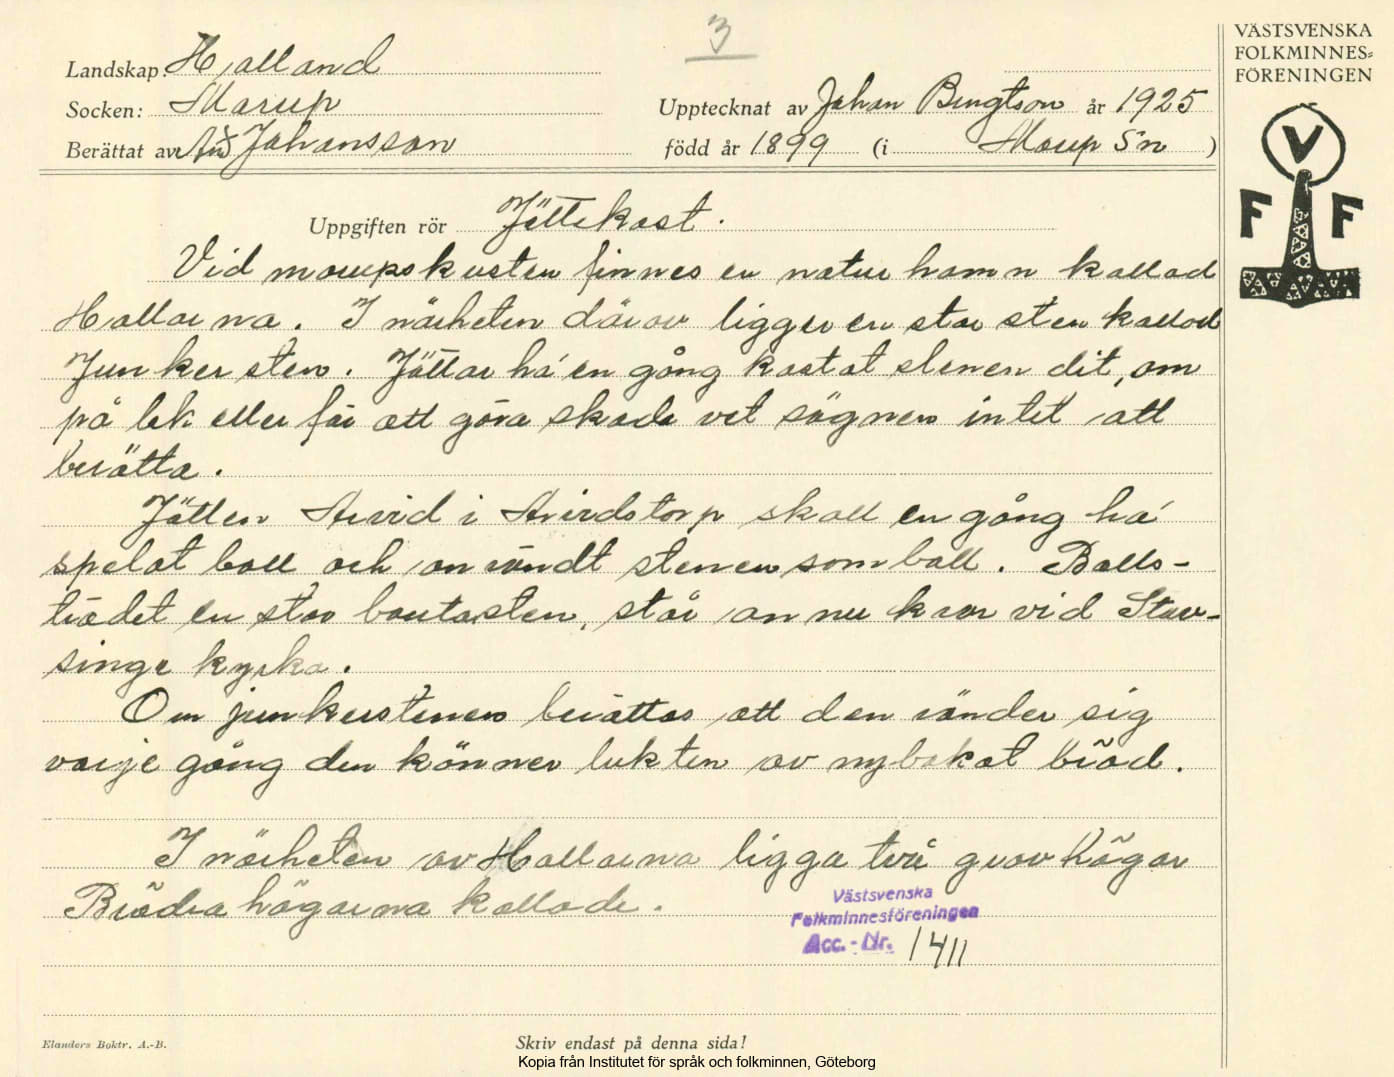 3
VÄSTSVENSKA
FOLKMINNES=
FÖRENINGEN
V
F F
Landskap: Halland
Socken: Morup
Upptecknat av Johan Bengtson år 1925
Berättat av Johansson
född år 1899 (i Morup Sn)
Uppgiften rör Jättekast.
Vid morupskusten finnes en natur hamn kallad
Hallarna. I närheten därav ligger en stor sten kallad
Junker sten. Jättar ha en gång kastat stenen dit, om
på lek eller för att göra skada vet sägnen intet att
berätta.
Jätten Arvid i Arvidstorp skall en gång ha
spelat boll och användt stenen som boll. Boll-
trädet en stor bautasten, står annu kvar vid Stav-
singe kyrka.
Om junkerstenen berättas att den vänder sig
varje gång den känner lukten av nybakat bröd.
I närheten av Hallarna ligga två gravhögar
Brödrahögarna kallade.
Västsvenska
Folkminnesföreningen
Acc.-Nr. 1411
Elanders Boktr. A.-B.
Skriv endast på denna sida!
Kopia från Institutet för språk och folkminnen, Göteborg